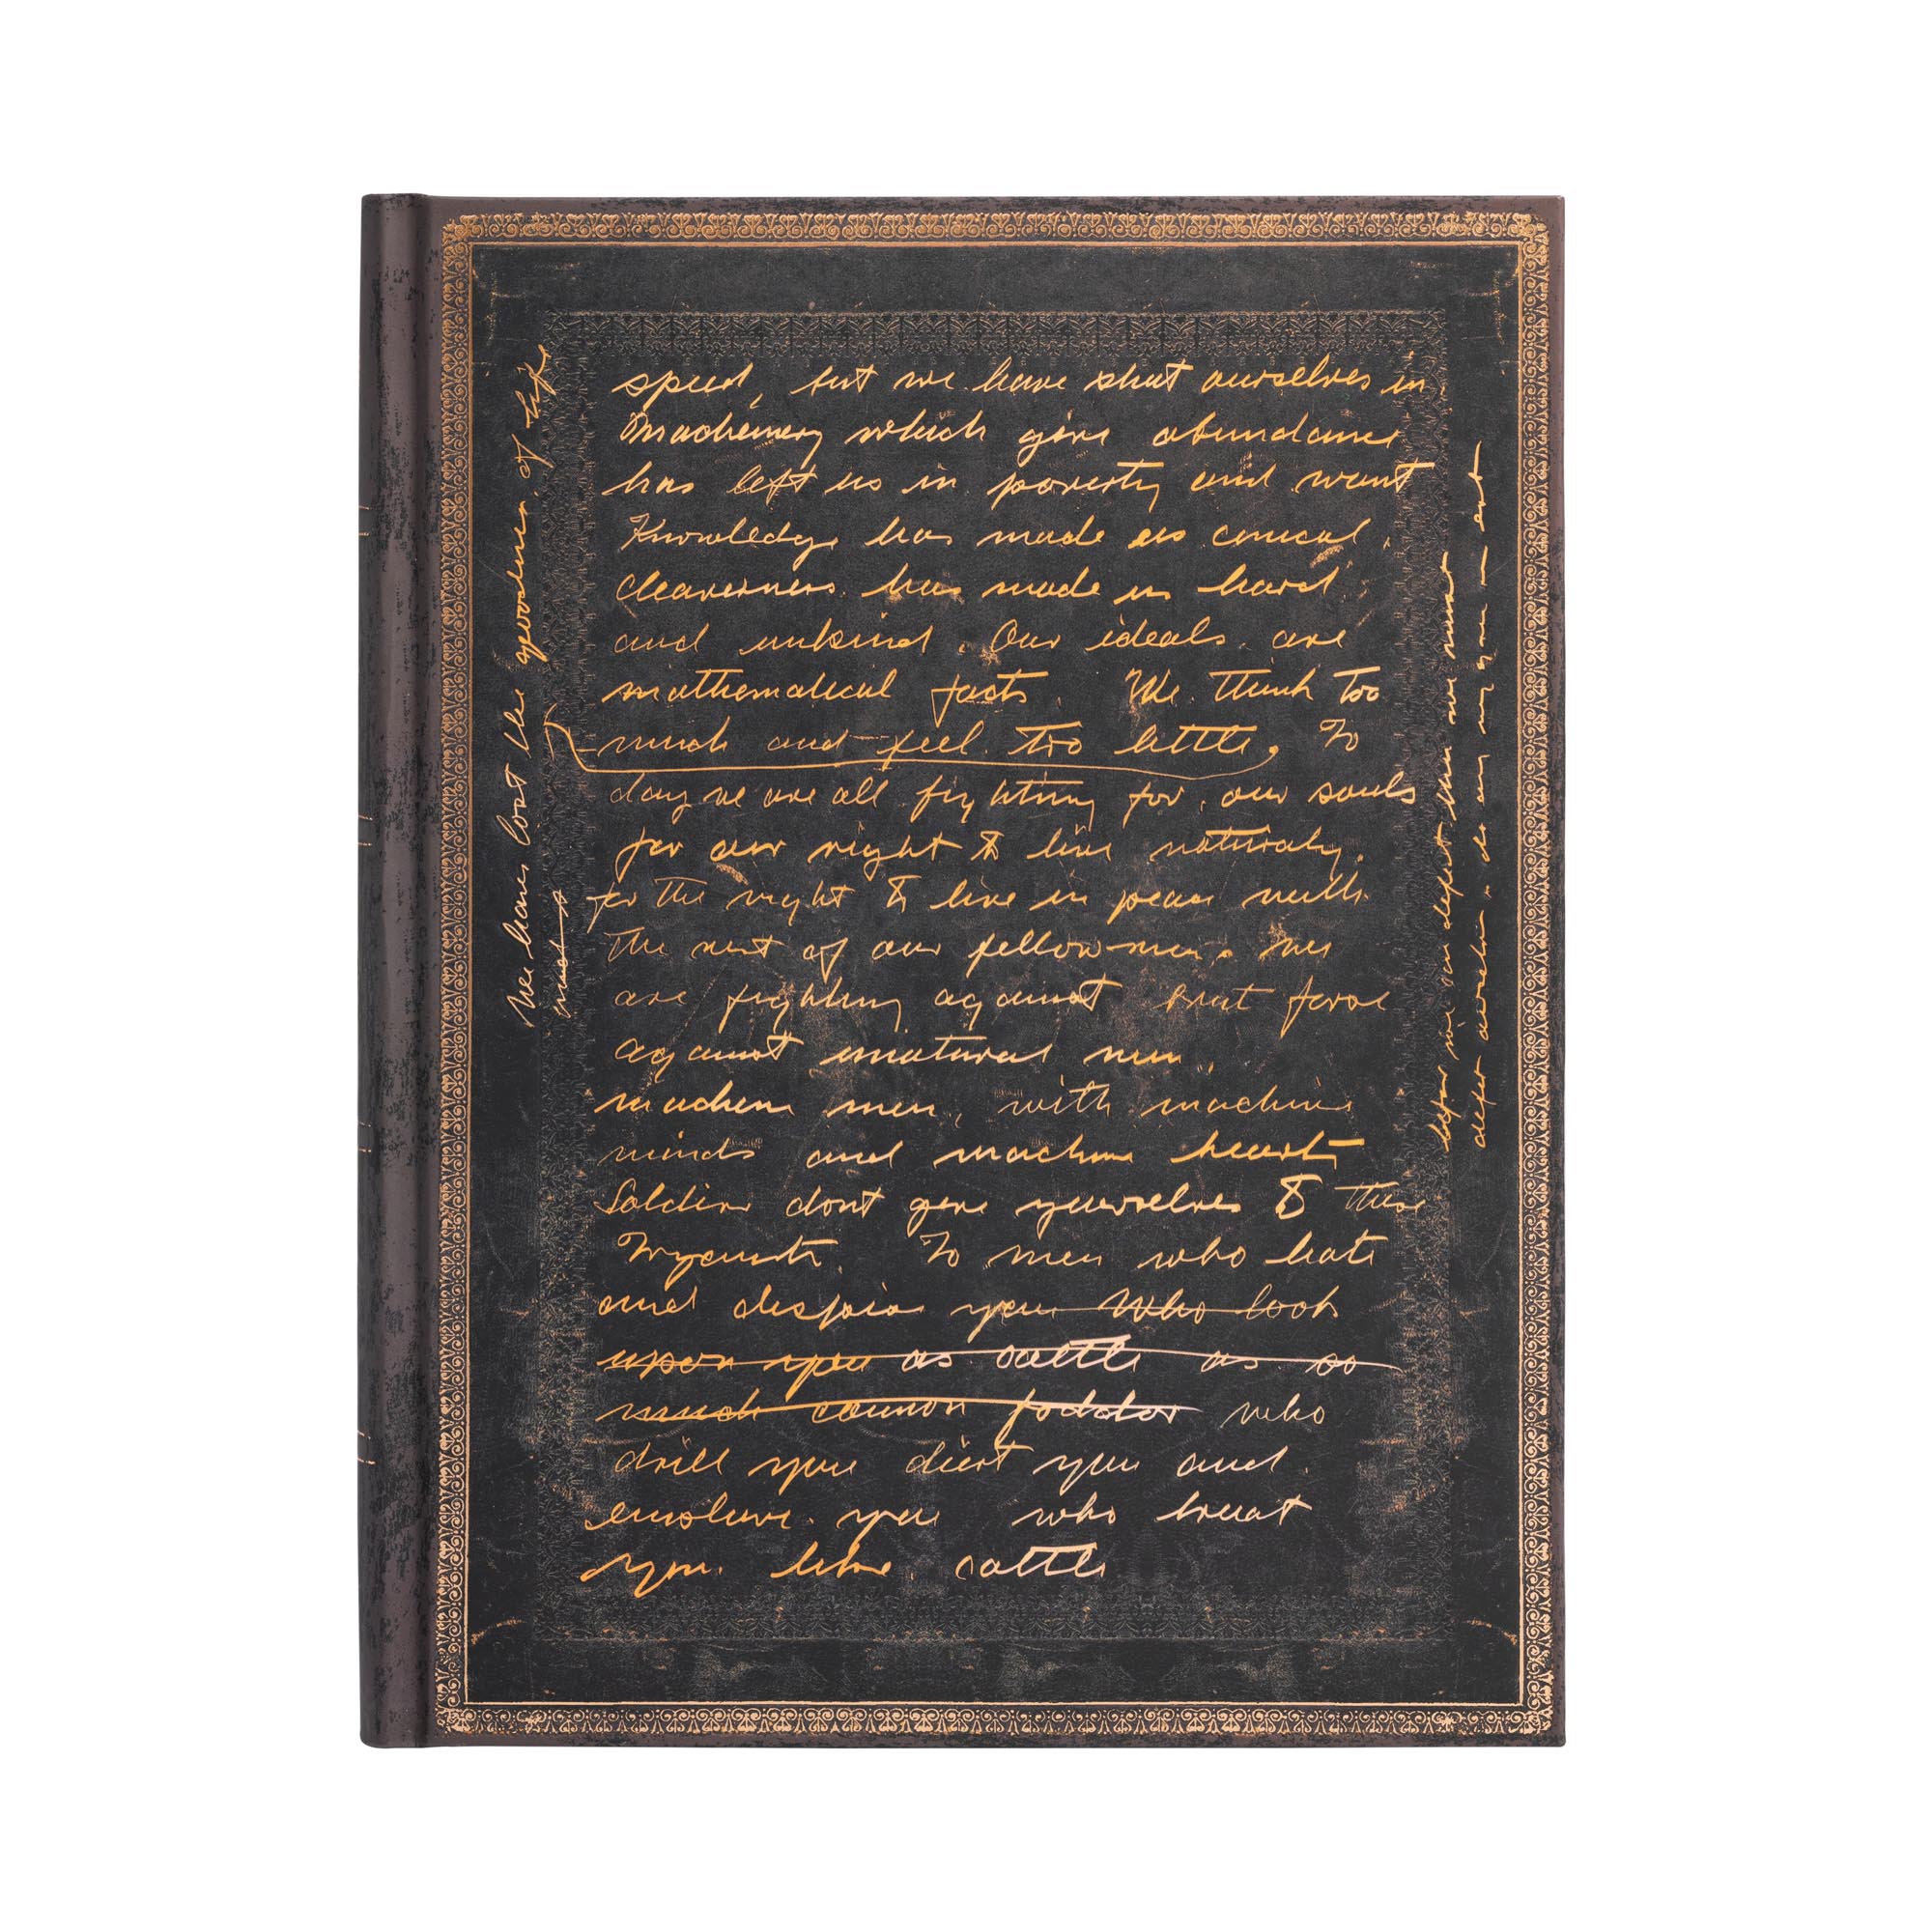 speed, but we have shut ourselves in
Machinery which give abundance
has left us in poverty and want
Knowledge has made us cinical,
cleaverness has made us hard
and unkind. Our ideals are
mathematical facts. We think too
much and feel too little. To
day we are all fighting for, our souls
for our right to live naturaly.
for the right to live in peace with
the rest of our fellow-men. we
are fighting against brut force
against unatural men.
machine men, with machine
minds and machine hearts
Soldiers dont give yourselves to these
To men who hate
and despise you who look
upon you as cattle as so
much cannon fodder who
drill you diert you and
enslave you who treat
you like cattle
We have lost the goodness of life